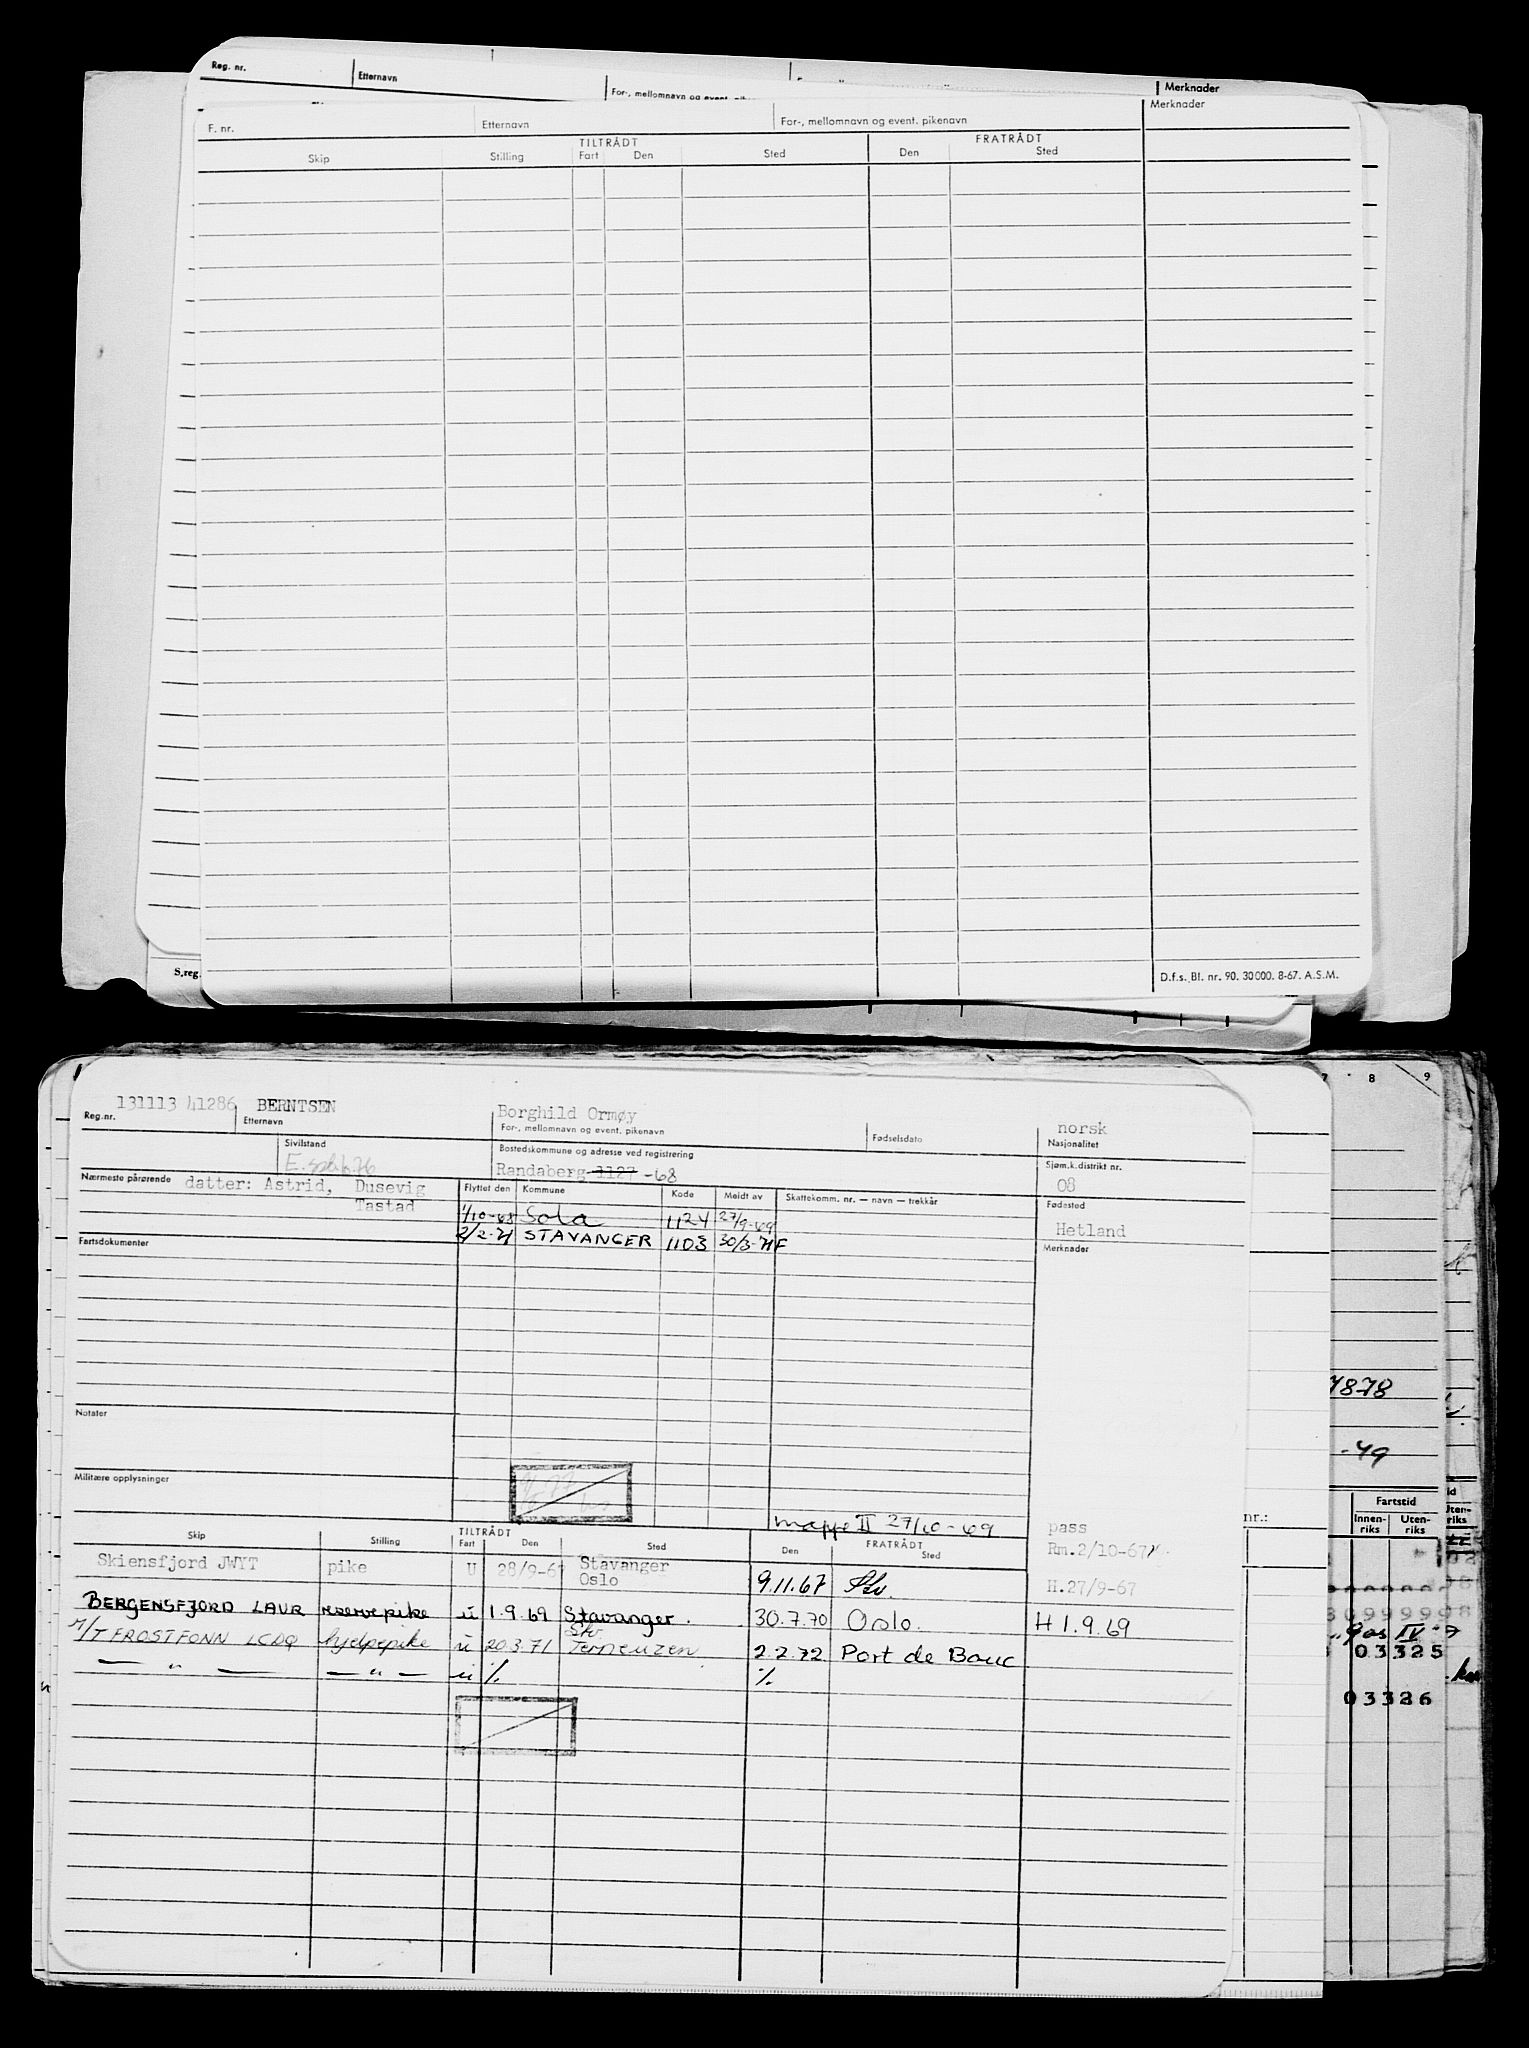 Reg. nr.
Etternavn
For-, mellomnavn og event. pike
Merknader
F. nr.
Etternavn
For-, mellomnavn og event. pikenavn
Merknader
TILTRÅDT
FRATRÅDT
Skip
Stilling
Fart
Den
Sted
Den
Sted
S.reg.
D.f.s. Bl. nr. 90. 30000. 8-67. A.S.M.
7 8 9
131113 41286 BERNTSEN
Borghild Ormøy
norsk
Reg.nr.
Etternavn
For-, mellomnavn og event. pikenavn
Fødselsdato
Nasjonalitet
Sivilstand
Bostedskommune og adresse ved registrering
Sjøm.k.distrikt nr.
Randaberg 1127 -68
08
Nærmeste pårørende
datter: Astrid, Dusevig
Tastad
Flyttet den
Kommune
Kode
Meldt av
Skattekomm. nr. — navn — trekkår
Fødested
1/10-68 Sola 1124 27/9-69
Hetland
2/2-71 STAVANGER 1103 30/3-71F
Fartsdokumenter
Merknader
7878
Notater
-49
Militære opplysninger
Fartstid
Innenriks
Utenriks
nr.:
mappe II 27/10-69
pass
Rm.2/10-67
TILTRÅDT
FRATRÅDT
Skip
Stilling
Fart
Den
Sted
Den
Sted
Skiensfjord JWYT pike U 28/9-67 Stavanger
Oslo
9.11.67 Stv.
H.27/9-67
BERGENSFJORD LAUR reservepike u 1.9.69 Stavanger. 30.7.70 Oslo. H 1.9.69
Stv
M/T FROSTFONN LCDQ hjelpepike u 20.3.71 Terneuzen 2.2.72 Port de Bouc
— " — — " — u % %
03325
03326